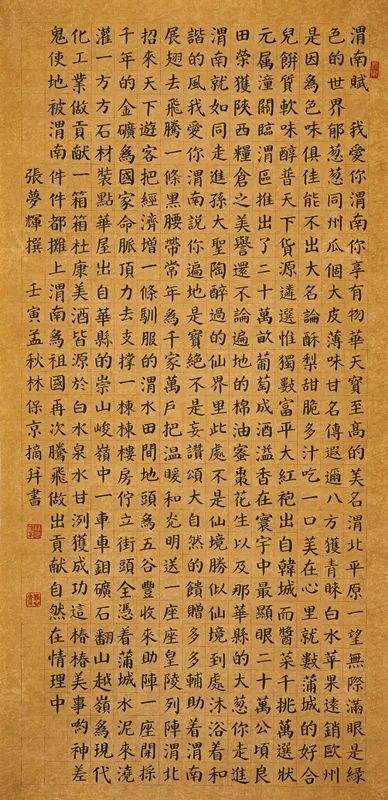 渭南賦 我愛你渭南你享有物華天寶至高的美名渭北平原一望無際滿眼是緑
色的世界郁葱葱同州瓜個大皮薄味甘名傳遐邇八方獲青睐白水苹果遠銷歐州
是因為色味俱佳能不出大名論酥梨甜脆多汁吃一口美在心里就數蒲城的好合
兒餅質軟味醇普天下貨源遴選惟獨數富平大紅袍出自韓城而醬菜千挑萬選狀
元属潼關臨渭區推出了二十萬畝葡萄成酒溢香在寰宇中最顯眼二十萬公頃良
田榮獲陝西糧倉之美譽還不論遍地的棉油蜜棗花生以及那華縣的大葱你走進
渭南就如同走進孫大聖陶醉過的仙界里此處不是仙境勝似仙境到處沐浴着和
諧的風我愛你渭南説你遍地是寶絶不是妄讚頌大自然的饋贈多多輔助着渭南
展翅去飛騰一條黑腰帶常年為千家萬戶把温暖和光明送一座座皇陵列陣渭北
招來天下遊客把經濟增一條馴服的渭水田間地頭為五谷豐收來助陣一座開採
千年的金礦為國家命脈頂力去支撑一棟棟樓房佇立街頭全憑着蒲城水泥來澆
灌一方方石材裝點華屋出自華縣的崇山峻嶺中一車車鉬礦石翻山越嶺為現代
化工業做貢獻一箱箱杜康美酒皆源於白水泉水甘洌獲成功這樁樁美事喲神差
鬼使地被渭南件件都攤上渭南為祖國再次騰飛做出貢獻自然在情理中
張夢輝撰 壬寅孟秋林保京摘抖書